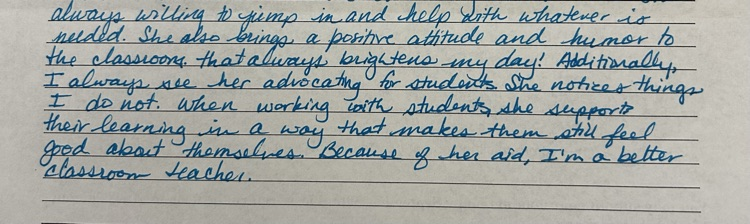 always willing to jump in and help with whatever is
needed. She also brings a positive attitude and humor to
the classroom that always brightens my day! Additionally,
I always see her advocating for students. She notices things
I do not. When working with students, she supports
their learning in a way that makes them still feel
good about themselves. Because of her aid, I'm a better
classroom teacher.